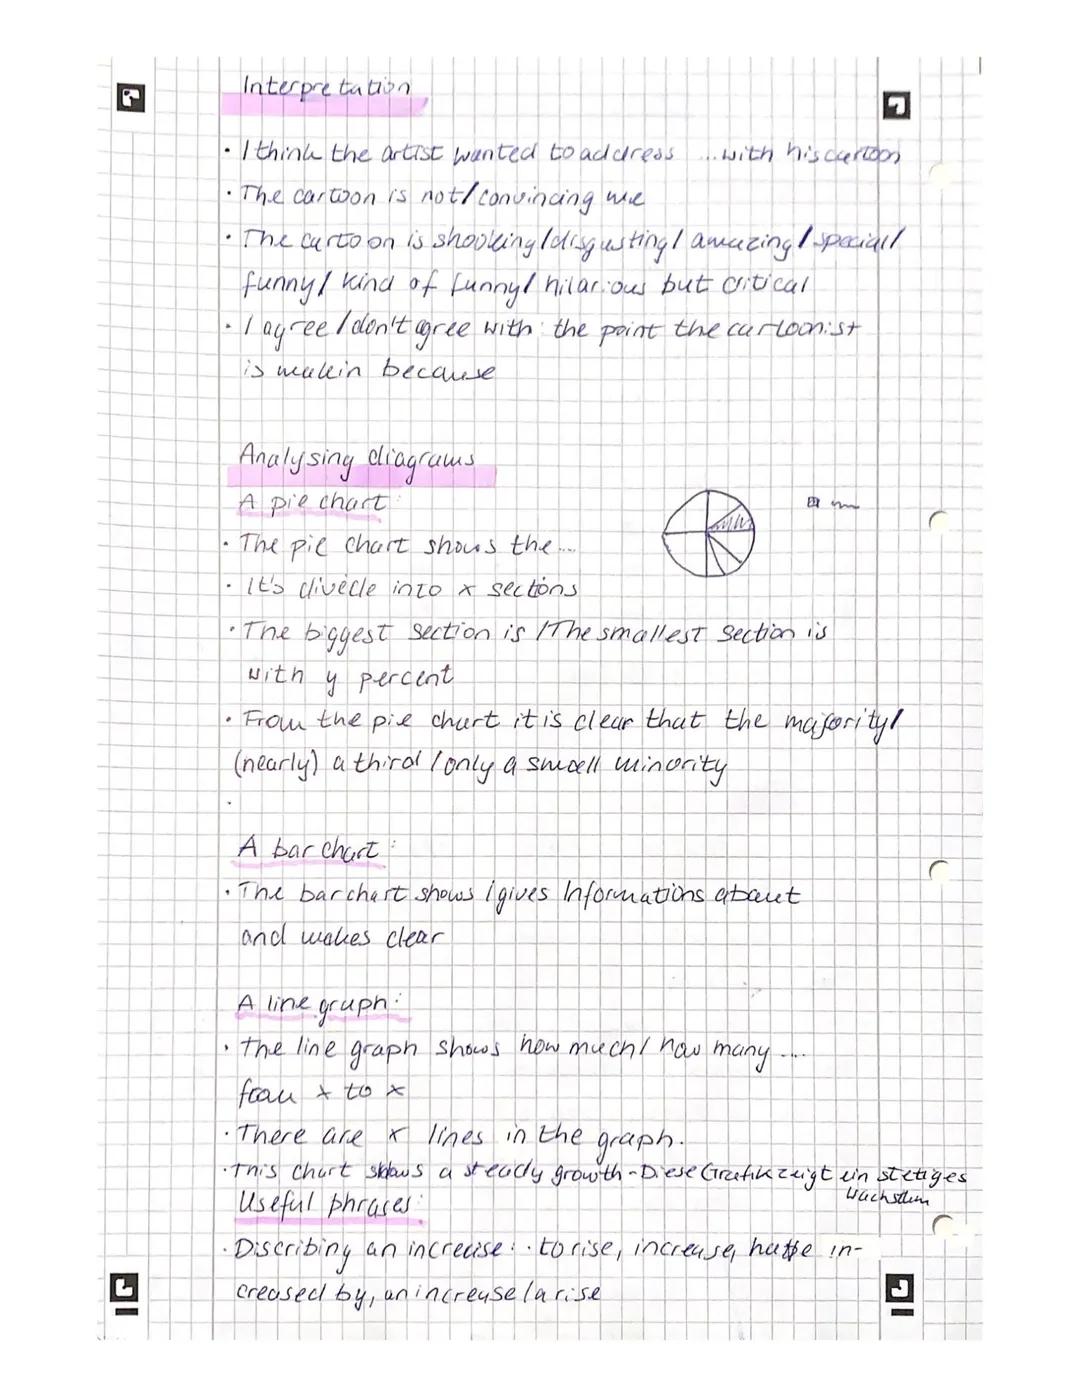 Interpretation
· I think the artist wanted to address ...with his cartoon
· The cartoon is not/convincing me
· The cartoon is shooking/disgusting/amazing/special/
funny/ kind of funny/ hilarious but critical
· I agree/don't agree with the point the cartoonist
is makin because
Analysing diagrams
A pie chart:
· The pie chart shows the...
· It's divede into x sections
· The biggest section is /The smallest section is
with y percent
· From the pie chart it is clear that the majority/
(nearly) a third /only a small minority
·
A bar chart:
· The bar chart shows /gives Informations about
and makes clear
A line graph:
· The line graph shows how much/ how many ....
from x to x
· There are x lines in the graph.
· This chart shows a steady growth - Diese Grafik zeigt ein stetiges
Wachstum
Useful phrases:
· Discribing an increase: · to rise, increase, in-
creased by, an increase/a rise